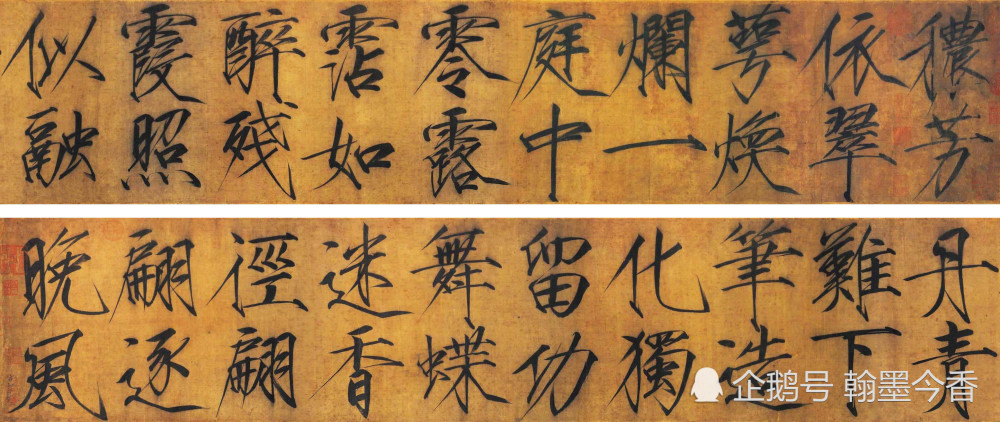 穠芳
依翠
萼煥
爛一
庭中
零露
霑如
醉残
霞照
似融
丹青
難下
筆造
化獨
留功
舞蝶
迷香
徑翩
翩逐
晚風
企鹅号 翰墨今香